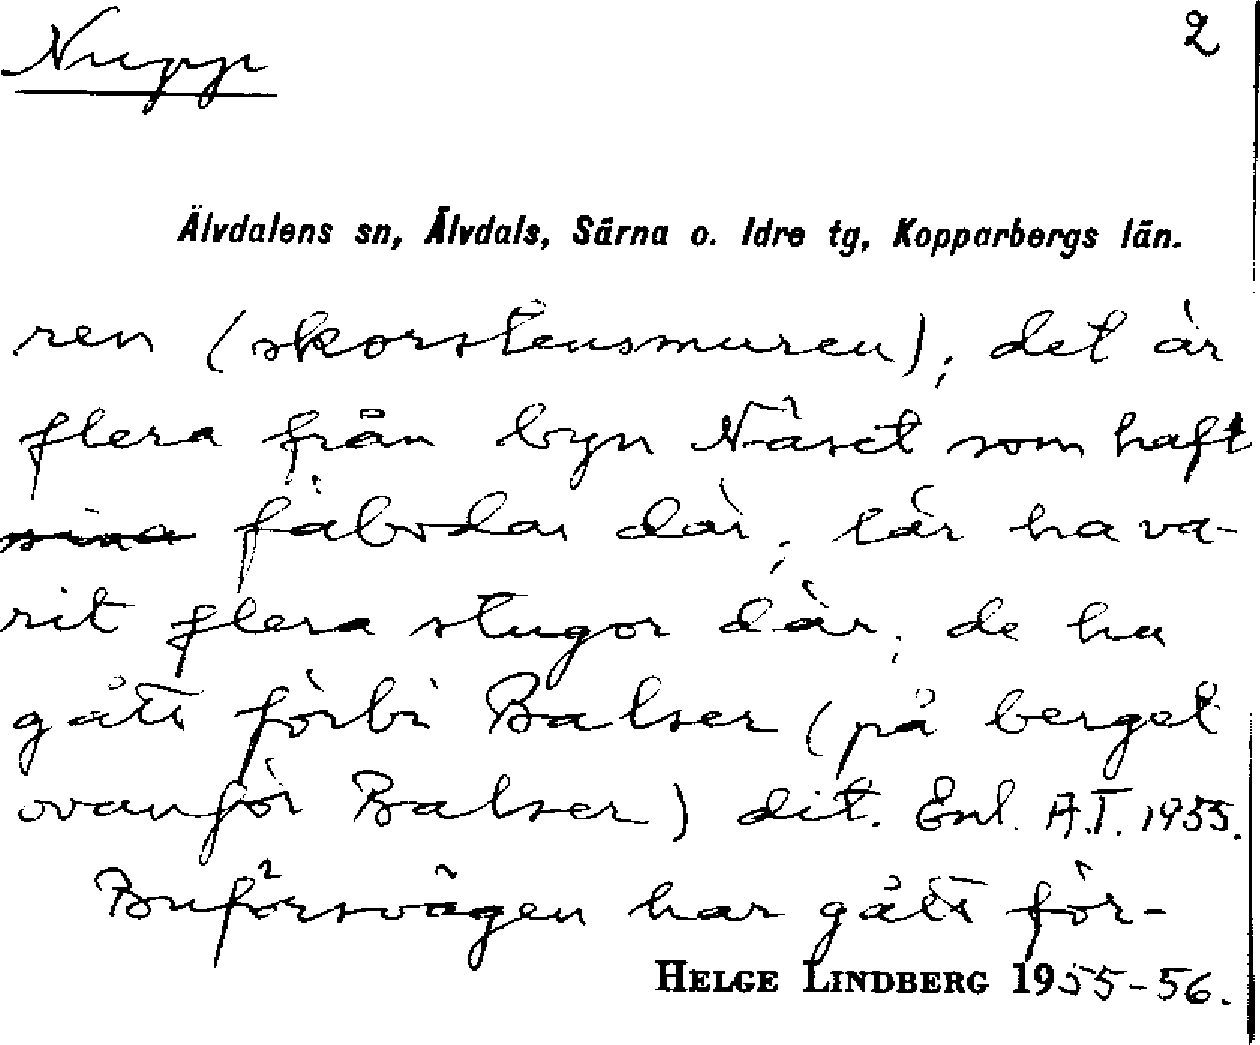 Nupp
2
Älvdalens sn, Älvdals, Särna o. Idre tg, Kopparbergs län.
ren (skorstensmuren); det är
flera från byn Näset som haft
sina fäbodar där; lär ha va-
rit flera stugor där; de ha
gått förbi Balser (på berget
ovanför Balser) dit. Enl. A.T. 1955.
Buförsvägen har gått för-
HELGE LINDBERG 1955-56.